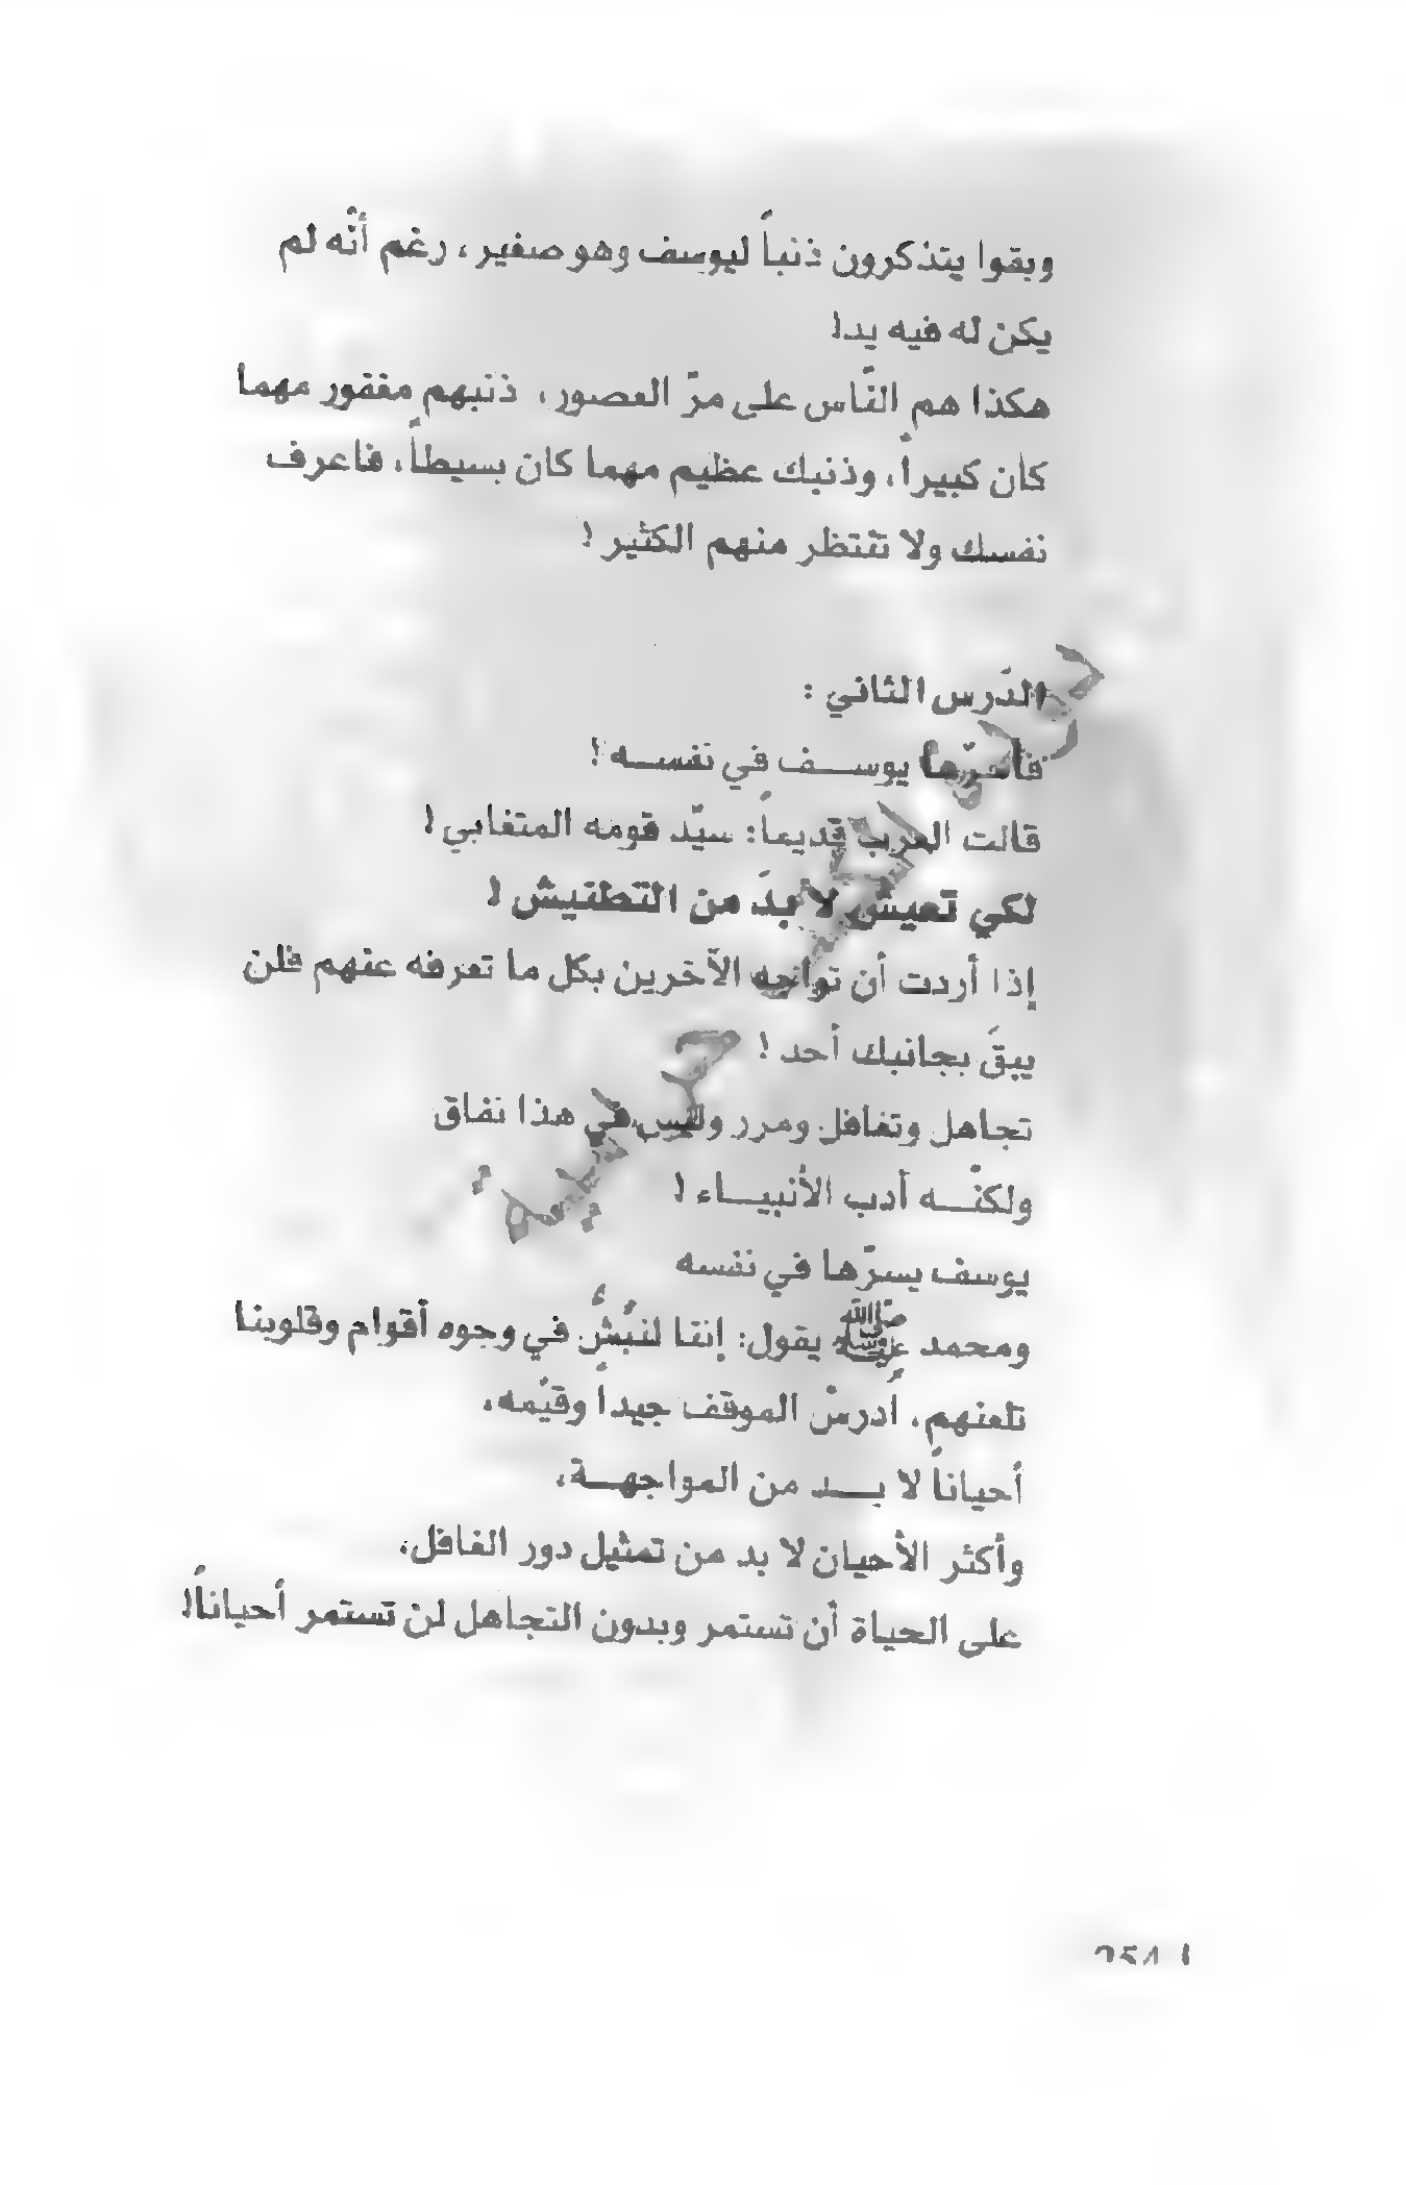 وبقوا يتذكرون ذنباً ليوسف وهو صغير، رغم أنّه لم
يكن له فيه يد!
هكذا هم النّاس على مرّ العصور، ذنبهم مغفور مهما
كان كبيراً، وذنبك عظيم مهما كان بسيطاً، فاعرف
نفسك ولا تنتظر منهم الكثير !
الدّرس الثاني :
فأسرّها يوسف في نفسه !
قالت العرب قديماً: سيّد قومه المتغابي !
لكي تعيش لا بدّ من التطنيش !
إذا أردت أن تواجه الآخرين بكل ما تعرفه عنهم فلن
يبقَ بجانبك أحد !
تجاهل وتغافل ومرر وليس في هذا نفاق
ولكنّه أدب الأنبياء !
يوسف يسرّها في نفسه
ومحمد ﷺ يقول: إننا لنبُشُّ في وجوه أقوام وقلوبنا
تلعنهم، أدرسْ الموقف جيداً وقيّمه،
أحياناً لا بد من المواجهة،
وأكثر الأحيان لا بد من تمثيل دور الغافل،
على الحياة أن تستمر وبدون التجاهل لن تستمر أحياناً!